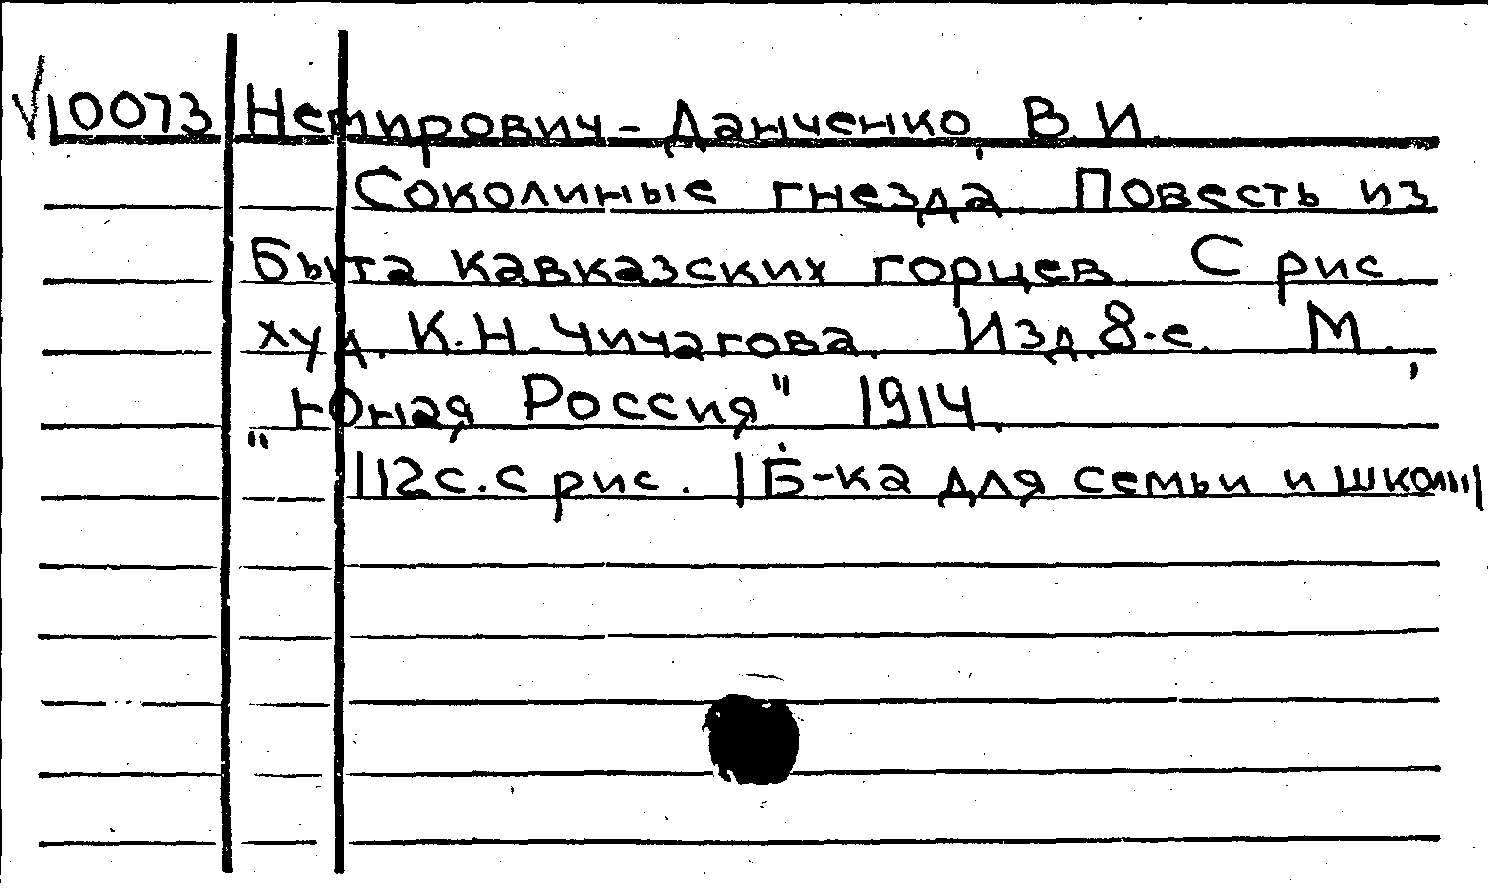 √10073 Немирович-Данченко, В.И.
Соколиные гнезда. Повесть из
быта кавказских горцев. С рис.
худ. К.Н.Чичагова. Изд.8-е. М.,
"Юная Россия" 1914.
112с.с рис. |Б-ка для семьи и школы|